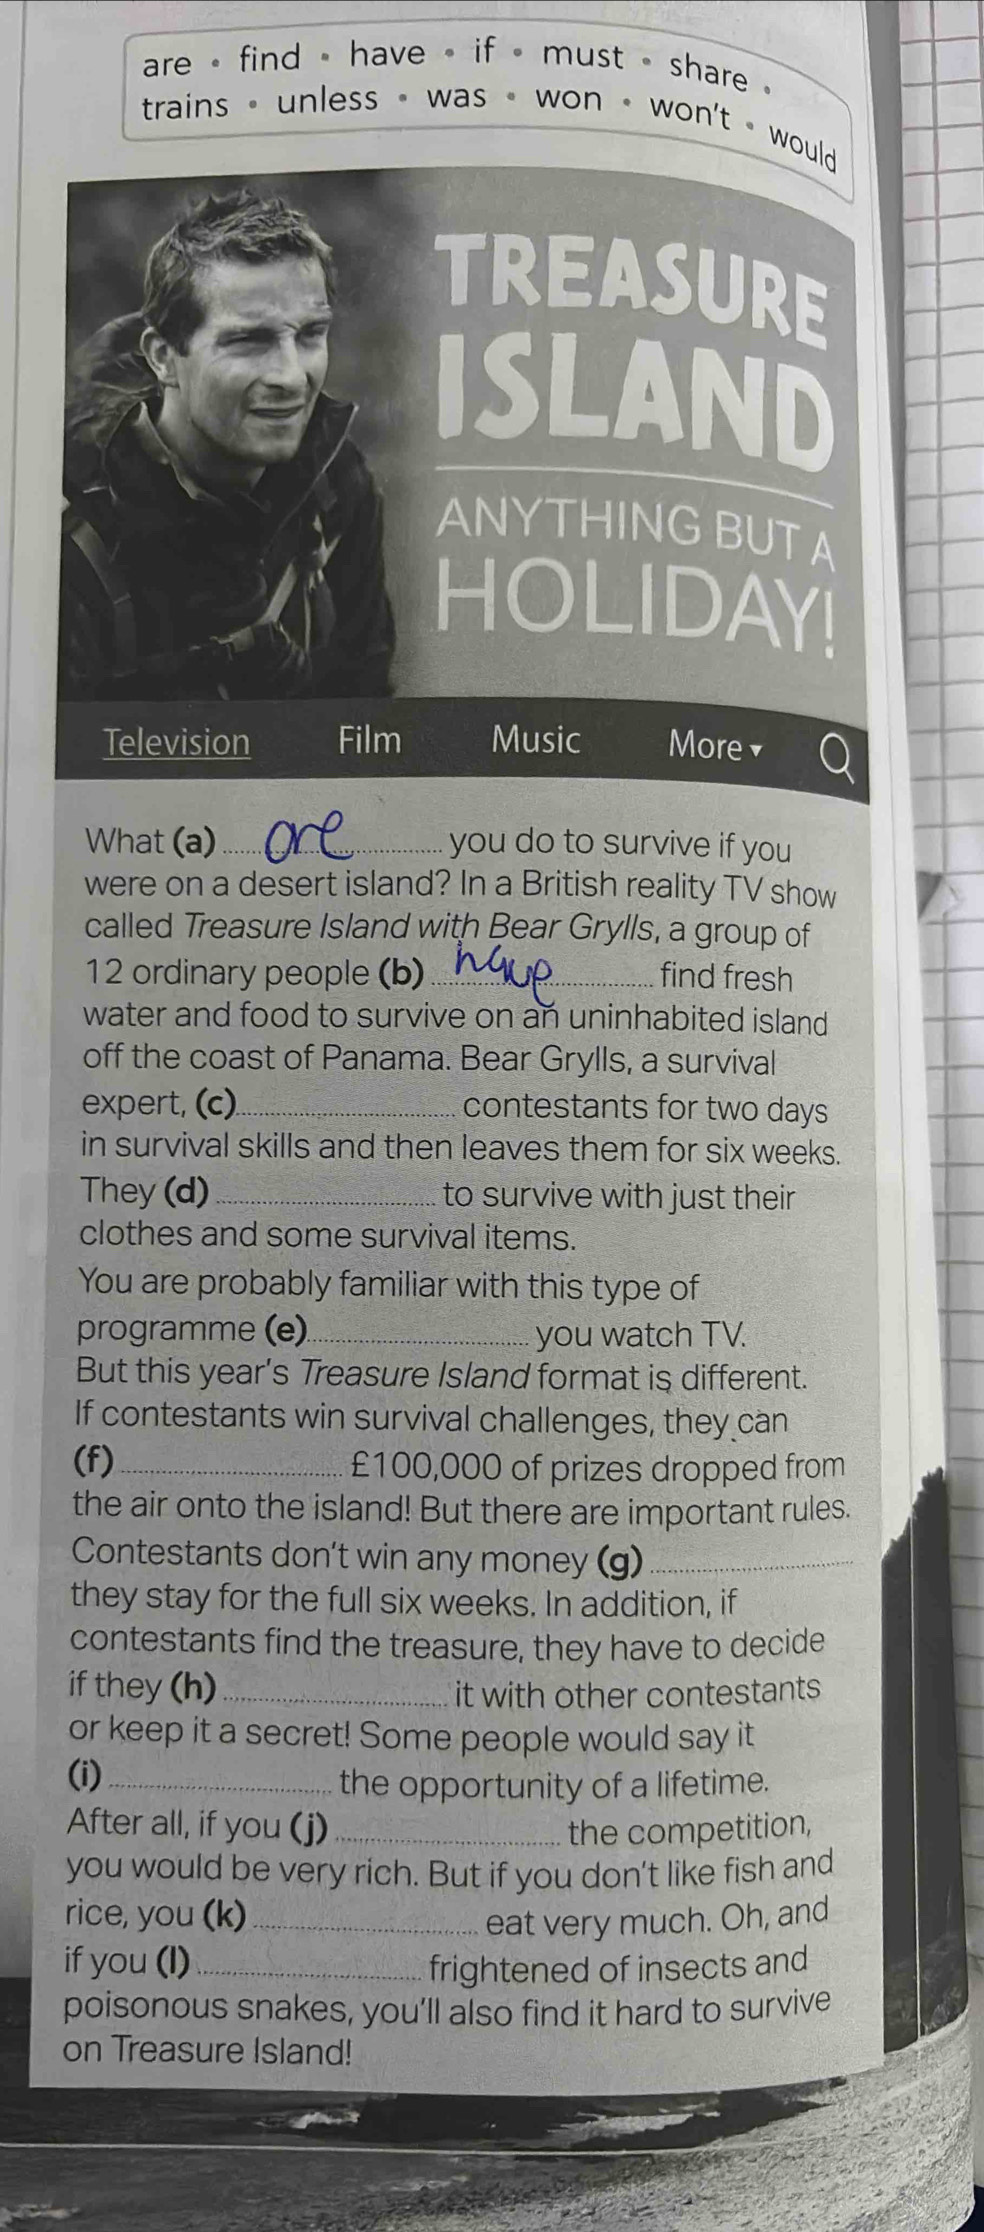 are • find • have • if • must • share •
trains • unless • was • won • won't • would
TREASURE
ISLAND
ANYTHING BUT A
HOLIDAY!
Television Film Music More ▾
What (a) are you do to survive if you
were on a desert island? In a British reality TV show
called Treasure Island with Bear Grylls, a group of
12 ordinary people (b) have find fresh
water and food to survive on an uninhabited island
off the coast of Panama. Bear Grylls, a survival
expert, (c) contestants for two days
in survival skills and then leaves them for six weeks.
They (d) to survive with just their
clothes and some survival items.
You are probably familiar with this type of
programme (e) you watch TV.
But this year's Treasure Island format is different.
If contestants win survival challenges, they can
(f) £100,000 of prizes dropped from
the air onto the island! But there are important rules.
Contestants don't win any money (g)
they stay for the full six weeks. In addition, if
contestants find the treasure, they have to decide
if they (h) it with other contestants
or keep it a secret! Some people would say it
(i) the opportunity of a lifetime.
After all, if you (j) the competition,
you would be very rich. But if you don't like fish and
rice, you (k) eat very much. Oh, and
if you (l) frightened of insects and
poisonous snakes, you'll also find it hard to survive
on Treasure Island!